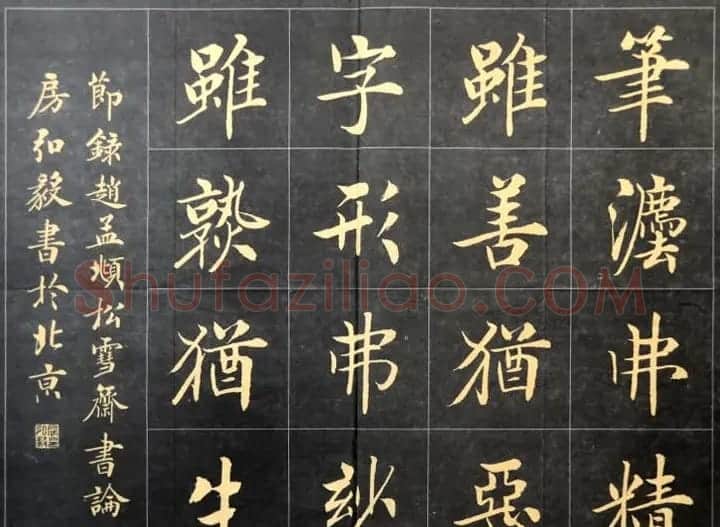 筆灋弗精
雖善猶惡
字形弗玅
雖熟猶生
節錄趙孟頫松雪齋書論
房弘毅書於北京
Shufaziliao.COM